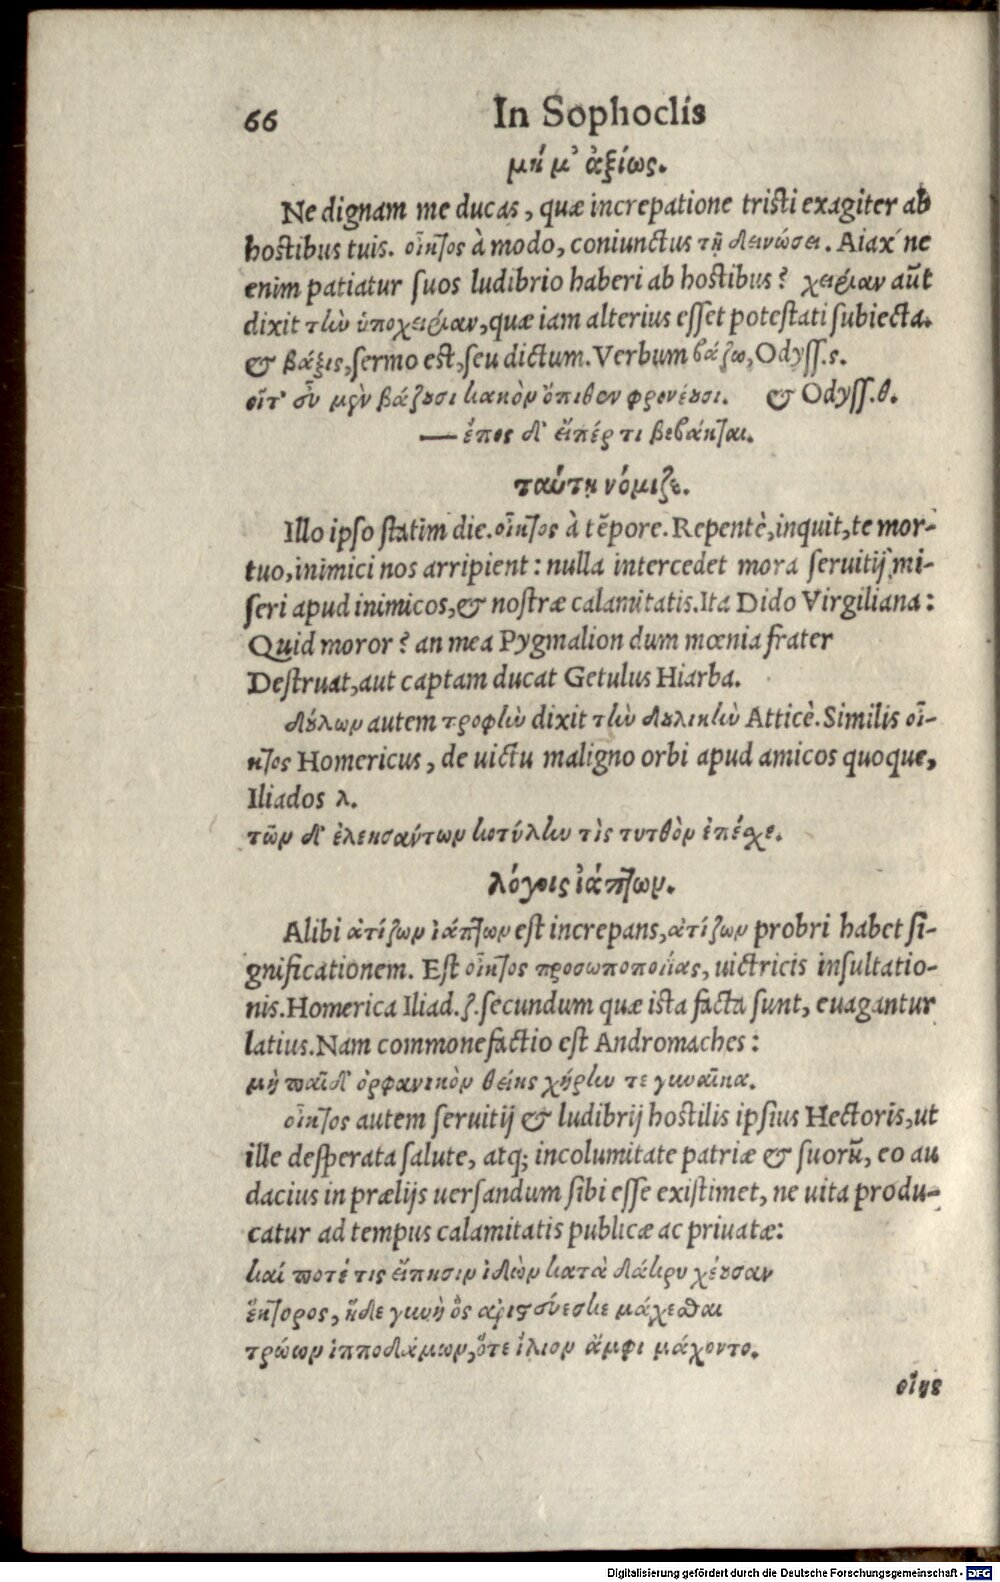 66 In Sophoclis
μή μ' ἀξίως.
Ne dignam me ducas, quæ increpatione tristi exagiter ab
hostibus tuis. οἶκτος à modo, coniunctus τῇ δεινώσει. Aiax' ne
enim patiatur suos ludibrio haberi ab hostibus? χειρίαν aūt
dixit τὴν ὑποχειρίαν, quæ iam alterius esset potestati subiecta.
& βάξις, sermo est, seu dictum. Verbum βάζω, Odyss. s.
οἵτ' σὺ μὲν βάζουσι κακὸν ὄπιθεν φρονέουσι. & Odyss. θ.
— ἔπος δ' εἴπέρ τι βεβάκται.
ταύτῃ νόμιζε.
Illo ipso statim die. οἶκτος à tēpore. Repentè, inquit, te mor-
tuo, inimici nos arripient: nulla intercedet mora seruitij mi-
seri apud inimicos, & nostræ calamitatis. Ita Dido Virgiliana:
Quid moror? an mea Pygmalion dum mœnia frater
Destruat, aut captam ducat Getulus Hiarba.
δούλων autem τροφὴν dixit τὴν δουλικὴν Atticè. Similis οἶ-
κτος Homericus, de uictu maligno orbi apud amicos quoque,
Iliados λ.
τῶν δ' ἐλεησάντων κοτύλην τὶς τυτθὸν ἐπέσχε.
λόγοις ἰάπτων.
Alibi ἀτίζων ἰάπτων est increpans, ἀτίζων probri habet si-
gnificationem. Est οἶκτος προσωποποιίας, uictricis insultatio-
nis. Homerica Iliad. ζ. secundum quæ ista facta sunt, euagantur
latius. Nam commonefactio est Andromaches:
μὴ παῖδ' ὀρφανικὸν θείης χήρην τε γυναῖκα.
οἶκτος autem seruitij & ludibrij hostilis ipsius Hectoris, ut
ille desperata salute, atq; incolumitate patriæ & suorū, eo au
dacius in prælijs uersandum sibi esse existimet, ne uita produ-
catur ad tempus calamitatis publicæ ac priuatæ:
καί ποτέ τις εἴπησιν ἰδὼν κατὰ δάκρυ χέουσαν
ἕκτορος, ἥδε γυνὴ ὃς ἀριστεύεσκε μάχεσθαι
τρώων ἱπποδάμων, ὅτε ἴλιον ἄμφι μάχοντο.
οἵης
Digitalisierung gefördert durch die Deutsche Forschungsgemeinschaft - DFG